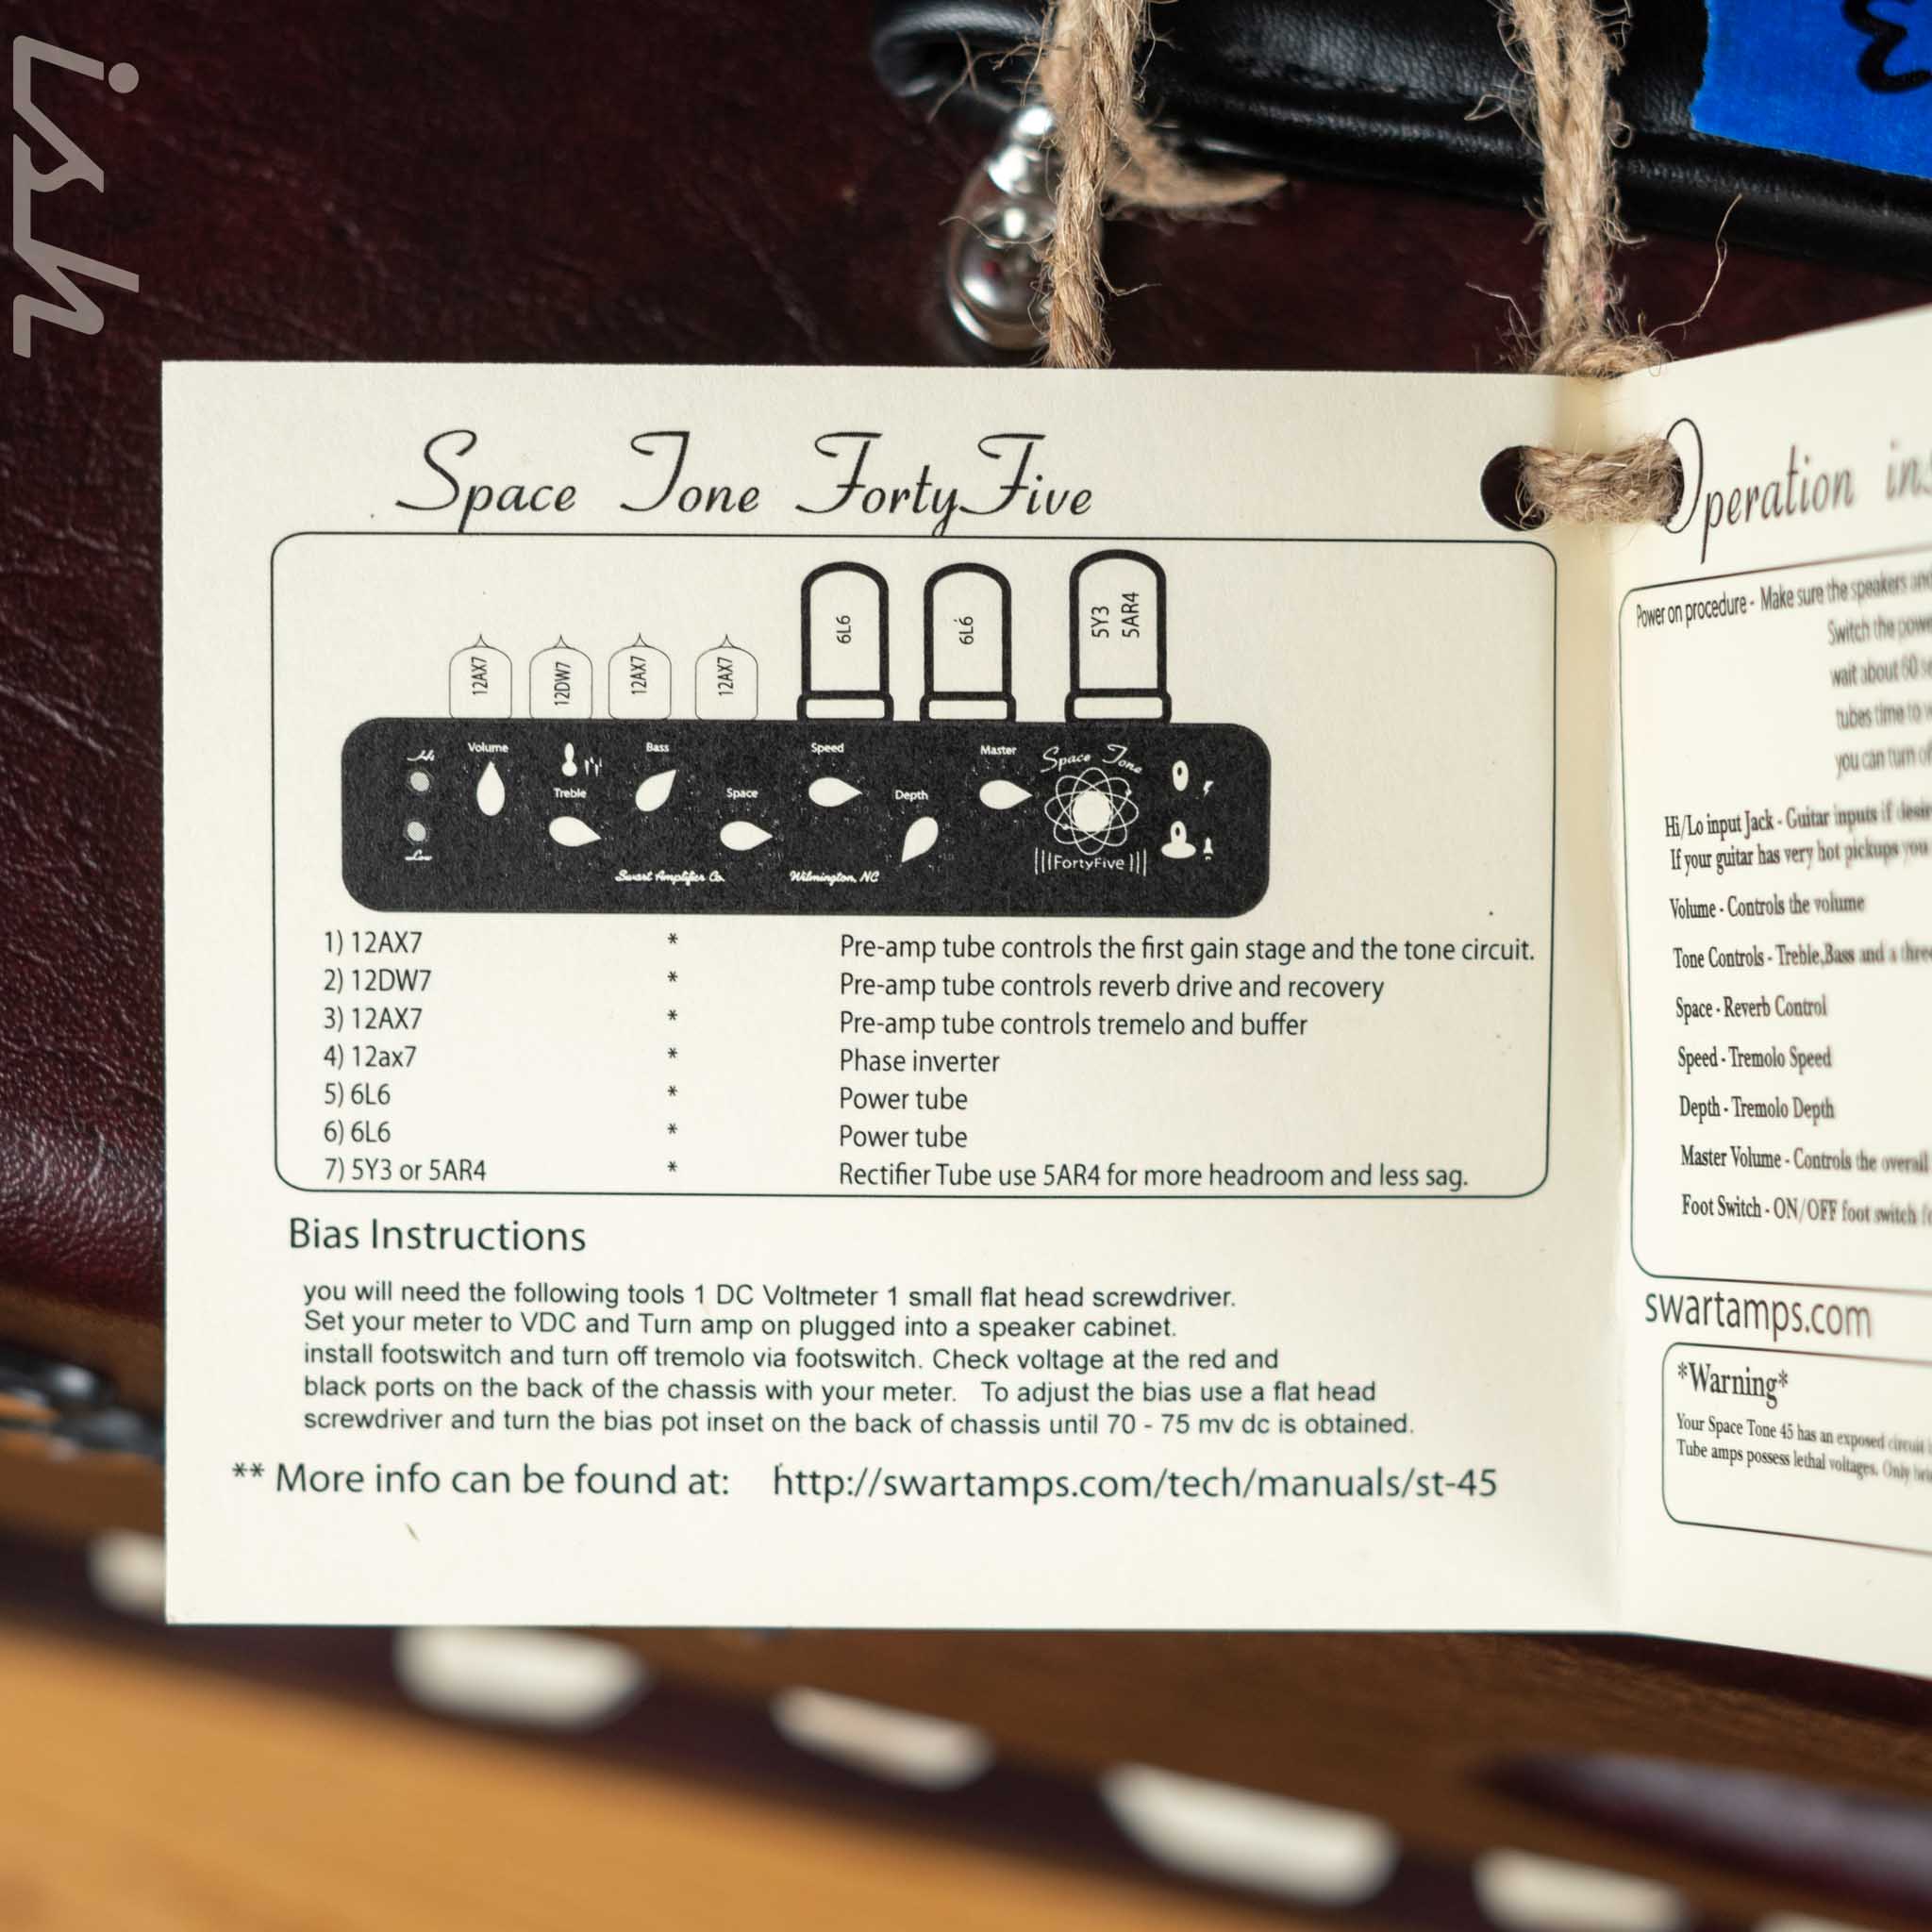 ish
Space Tone FortyFive
12AX7
12DW7
12AX7
12AX7
6L6
6L6
5Y3
5AR4
Hi
Volume
Treble
Bass
Space
Speed
Depth
Master
Space Tone
FortyFive
Low
Swart Amplifier Co.
Wilmington, NC
1) 12AX7 * Pre-amp tube controls the first gain stage and the tone circuit.
2) 12DW7 * Pre-amp tube controls reverb drive and recovery
3) 12AX7 * Pre-amp tube controls tremelo and buffer
4) 12ax7 * Phase inverter
5) 6L6 * Power tube
6) 6L6 * Power tube
7) 5Y3 or 5AR4 * Rectifier Tube use 5AR4 for more headroom and less sag.
Bias Instructions
you will need the following tools 1 DC Voltmeter 1 small flat head screwdriver.
Set your meter to VDC and Turn amp on plugged into a speaker cabinet.
install footswitch and turn off tremolo via footswitch. Check voltage at the red and
black ports on the back of the chassis with your meter. To adjust the bias use a flat head
screwdriver and turn the bias pot inset on the back of chassis until 70 - 75 mv dc is obtained.
** More info can be found at: http://swartamps.com/tech/manuals/st-45
Operation ins
Power on procedure - Make sure the speakers and
Switch the powe
wait about 60 se
tubes time to
you can turn of
Hi/Lo input Jack - Guitar inputs if desir
If your guitar has very hot pickups you
Volume - Controls the volume
Tone Controls - Treble,Bass and a thre
Space - Reverb Control
Speed - Tremolo Speed
Depth - Tremolo Depth
Master Volume - Controls the overall
Foot Switch - ON/OFF foot switch
swartamps.com
*Warning*
Your Space Tone 45 has an exposed circuit
Tube amps possess lethal voltages. Only